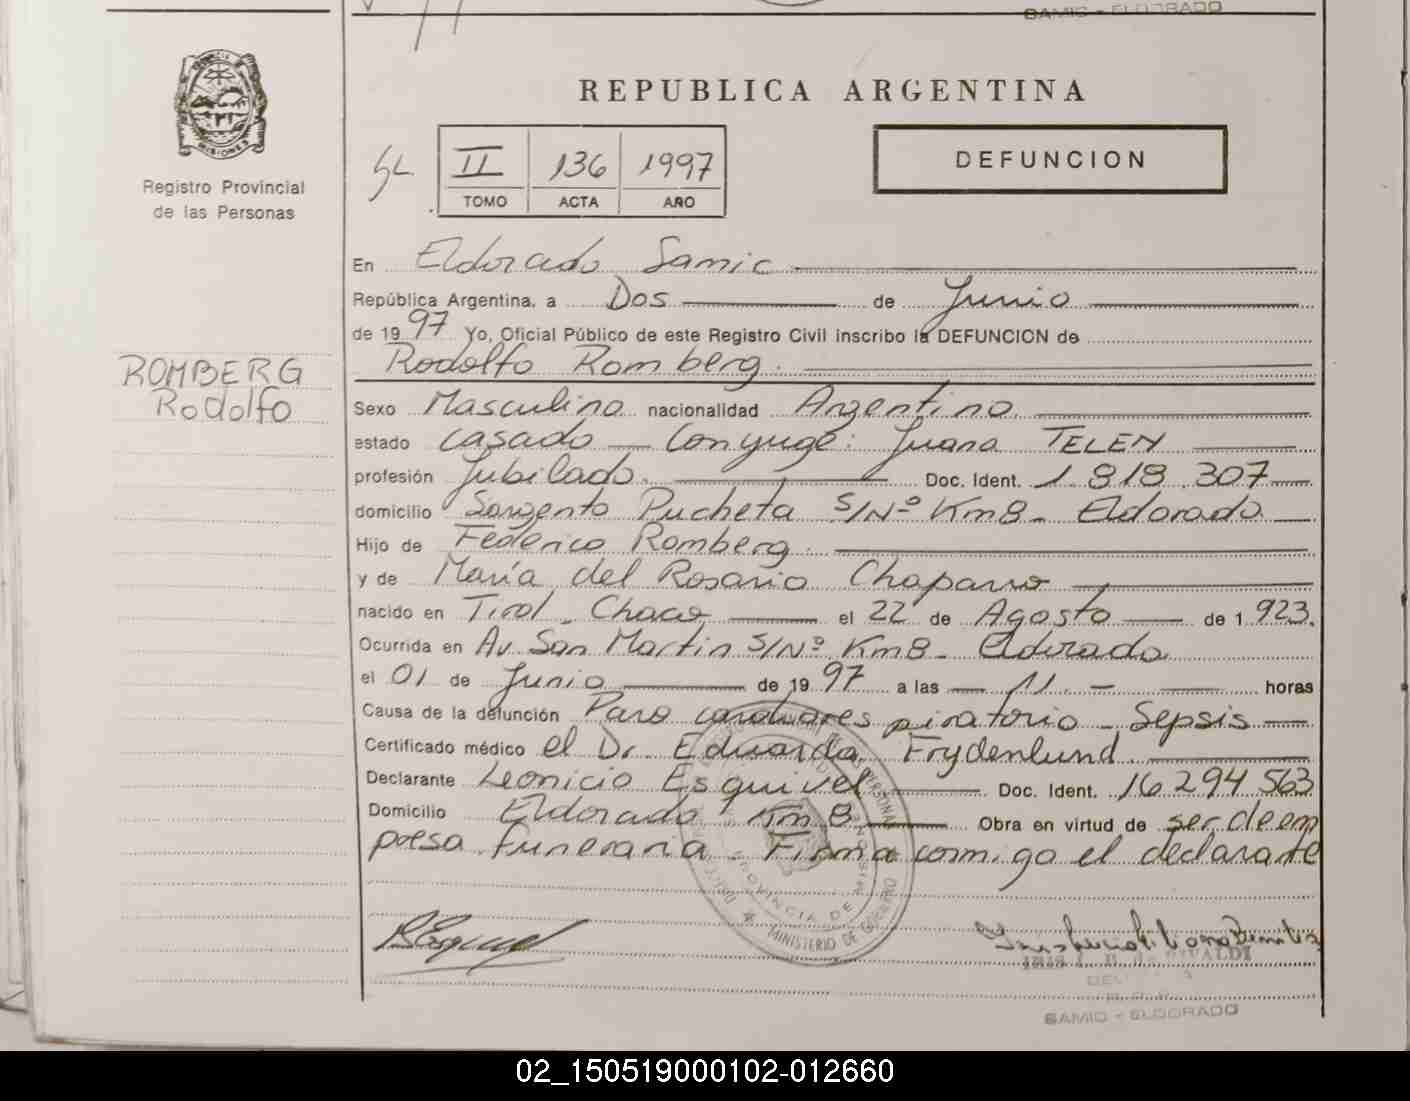 SAMIC - ELDORADO
REPUBLICA ARGENTINA
MISIONES
Registro Provincial
de las Personas
II 136 1997
TOMO ACTA AÑO
DEFUNCION
En Eldorado Samic
República Argentina, a Dos de Junio
de 1997 Yo, Oficial Público de este Registro Civil inscribo la DEFUNCION de
Rodolfo Romberg.
ROMBERG
Rodolfo
Sexo Masculino nacionalidad Argentino
estado Casado - Conyuge: Juana TELEM
profesión Jubilado. Doc. Ident. 1.818.307
domicilio Sargento Pucheta S/Nº Km8 - Eldorado
Hijo de Federico Romberg.
y de María del Rosario Chaparro
nacido en Tirol - Chaco el 22 de Agosto de 1.923.
Ocurrida en Av. San Martin S/Nº Km8 - Eldorado
el 01 de Junio de 1997 a las 11. horas
Causa de la defunción Paro cardiorespiratorio - Sepsis
Certificado médico el Dr. Eduardo Frydenlund.
Declarante Leonicio Esquivel Doc. Ident. 16.294.563
Domicilio Eldorado Km 8 Obra en virtud de ser de em
presa funeraria. Firma conmigo el declarante
PROVINCIA DE MISIONES
MINISTERIO DE GOBIERNO
SAMIC - ELDORADO
02_150519000102-012660